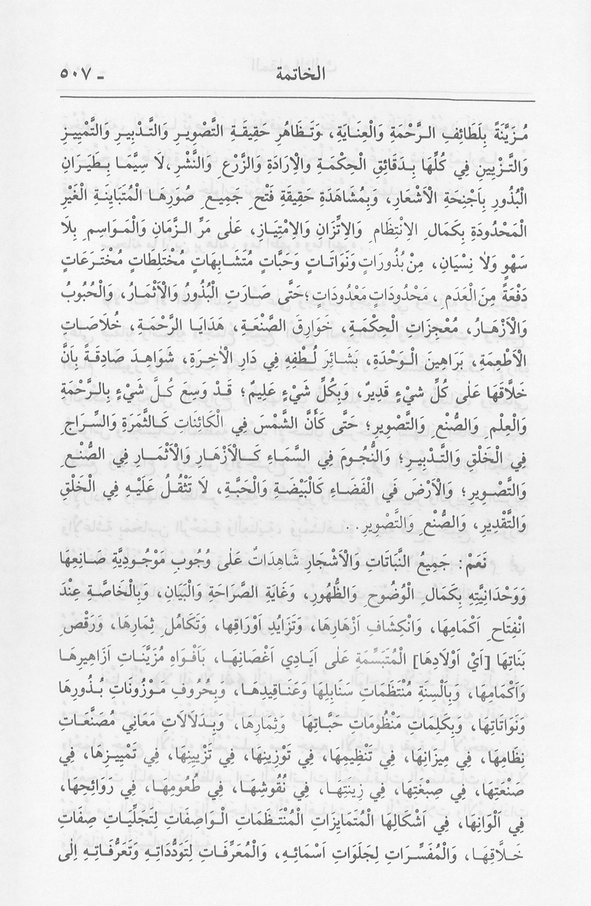 الخاتمة ـ ٥٠٧
مُزَيَّنَةً بِلَطَائِفِ الرَّحْمَةِ وَالْعِنَايَةِ، وَتَظَاهُرِ حَقِيقَةِ التَّصْوِيرِ وَالتَّدْبِيرِ وَالتَّمْيِيزِ
وَالتَّزْيِينِ فِي كُلِّهَا بِدَقَائِقِ الْحِكْمَةِ وَالْاِرَادَةِ وَالزَّرْعِ وَالنَّشْرِ، لَا سِيَّمَا بِطَيَرَانِ
الْبُذُورِ بِاَجْنِحَةِ الْاَشْعَارِ، وَبِمُشَاهَدَةِ حَقِيقَةِ فَتْحِ جَمِيعِ صُوَرِهَا الْمُتَبَايِنَةِ الْغَيْرِ
الْمَحْدُودَةِ بِكَمَالِ الْاِنْتِظَامِ وَالْاِتِّزَانِ وَالْاِمْتِيَازِ، عَلٰى مَرِّ الزَّمَانِ وَالْمَوَاسِمِ بِلَا
سَهْوٍ وَلَا نِسْيَانٍ، مِنْ بُذُورَاتٍ وَنَوَاتَاتٍ وَحَبَّاتٍ مُتَشَابِهَاتٍ مُخْتَلِطَاتٍ مُخْتَرَعَاتٍ
دَفْعَةً مِنَ الْعَدَمِ، مَحْدُودَاتٍ مَعْدُودَاتٍ؛ حَتَّى صَارَتِ الْبُذُورُ وَالْاَثْمَارُ، وَالْحُبُوبُ
وَالْاَزْهَارُ، مُعْجِزَاتِ الْحِكْمَةِ، خَوَارِقَ الصَّنْعَةِ، هَدَايَا الرَّحْمَةِ، خُلَاصَاتِ
الْاَطْعِمَةِ، بَرَاهِينَ الْوَحْدَةِ، بَشَائِرَ لُطْفِهِ فِي دَارِ الْاٰخِرَةِ، شَوَاهِدَ صَادِقَةً بِاَنَّ
خَلَّاقَهَا عَلٰى كُلِّ شَيْءٍ قَدِيرٌ، وَبِكُلِّ شَيْءٍ عَلِيمٌ؛ قَدْ وَسِعَ كُلَّ شَيْءٍ بِالرَّحْمَةِ
وَالْعِلْمِ وَالصُّنْعِ وَالتَّصْوِيرِ؛ حَتَّى كَأَنَّ الشَّمْسَ فِي الْكَائِنَاتِ كَالثَّمَرَةِ وَالسِّرَاجِ
فِي الْخَلْقِ وَالتَّدْبِيرِ؛ وَالنُّجُومَ فِي السَّمَاءِ كَالْاَزْهَارِ وَالْاَثْمَارِ فِي الصُّنْعِ
وَالتَّصْوِيرِ؛ وَالْاَرْضَ فِي الْفَضَاءِ كَالْبَيْضَةِ وَالْحَبَّةِ، لَا تَثْقُلُ عَلَيْهِ فِي الْخَلْقِ
وَالتَّقْدِيرِ، وَالصُّنْعِ وَالتَّصْوِيرِ..
نَعَمْ: جَمِيعُ النَّبَاتَاتِ وَالْاَشْجَارِ شَاهِدَاتٌ عَلٰى وُجُوبِ مَوْجُودِيَّةِ صَانِعِهَا
وَوَحْدَانِيَّتِهِ بِكَمَالِ الْوُضُوحِ وَالظُّهُورِ، وَغَايَةِ الصَّرَاحَةِ وَالْبَيَانِ، وَبِالْخَاصَّةِ عِنْدَ
انْفِتَاحِ اَكْمَامِهَا، وَانْكِشَافِ اَزْهَارِهَا، وَتَزَايُدِ اَوْرَاقِهَا، وَتَكَامُلِ ثِمَارِهَا، وَرَقْصِ
بَنَاتِهَا [اَيْ اَوْلَادِهَا] الْمُتَبَسِّمَةِ عَلٰى اَيَادِي اَغْصَانِهَا، بِاَفْوَاهِ مُزَيَّنَاتِ اَزَاهِيرِهَا
وَاَكْمَامِهَا، وَبِاَلْسِنَةِ مُنْتَظَمَاتِ سَنَابِلِهَا وَعَنَاقِيدِهَا، وَبِحُرُوفِ مَوْزُونَاتِ بُذُورِهَا
وَنَوَاتَاتِهَا، وَبِكَلِمَاتِ مَنْظُومَاتِ حَبَّاتِهَا وَثِمَارِهَا، وَبِدَلَالَاتِ مَعَانِي مُصَنَّعَاتِ
نِظَامِهَا، فِي مِيزَانِهَا، فِي تَنْظِيمِهَا، فِي تَوْزِينِهَا، فِي تَزْيِينِهَا، فِي تَمْيِيزِهَا، فِي
صَنْعَتِهَا، فِي صِبْغَتِهَا، فِي زِينَتِهَا، فِي نُقُوشِهَا، فِي طُعُومِهَا، فِي رَوَائِحِهَا،
فِي اَلْوَانِهَا، فِي اَشْكَالِهَا الْمُتَمَايِزَاتِ الْمُنْتَظَمَاتِ الْوَاصِفَاتِ لِتَجَلِّيَاتِ صِفَاتِ
خَلَّاقِهَا، وَالْمُفَسِّرَاتِ لِجَلَوَاتِ اَسْمَائِهِ، وَالْمُعَرِّفَاتِ لِتَوَدُّدَاتِهِ وَتَعَرُّفَاتِهِ اِلٰى